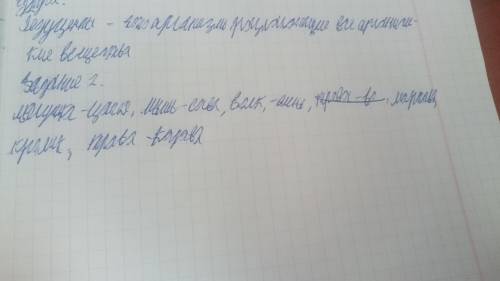 Редуценты - это организмы разлагающие все органиче-
кие вещества
Задание 2.
лягушка - цапля, мышь - сова, волк, - олень, морковь,
кролик, трава - корова